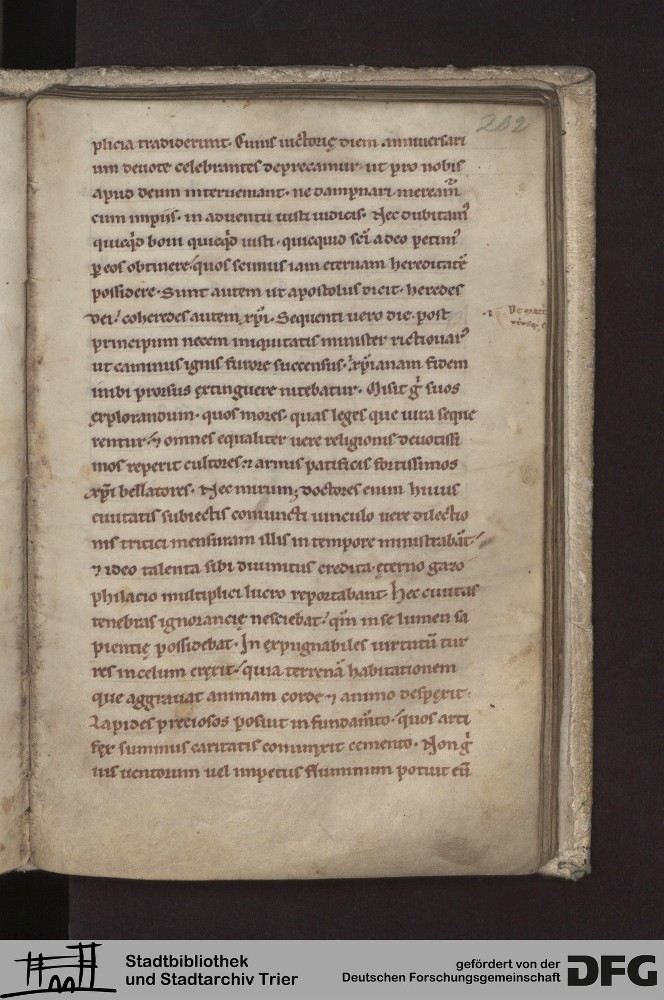 202
plicia tradiderunt. Cuius uictorię diem anniuersari
um deuote celebrantes deprecamur. ut pro nobis
apud deum interueniant. ne dampnari meream̄
cum impiis. in aduentu iusti iudicis. Nec dubitam᷒
quicq̇d boni quicq̇d iusti. quicquid sc̄i a deo petim᷒
ꝑ eos obtinere. quos scimus iam eternam hereditatē
possidere. Sunt autem ut apostolus dicit. heredes
dei. coheredes autem xp̄i. Sequenti uero die. post
principum necem iniquitatis minister rictiouar᷒
ut caminus ignis furore succensus. xp̄ianam fidem
inibi prorsus extinguere nitebatur. Misit g̊ suos
explorandum. quos mores. quas leges que iura seque
rentur. ⁊ omnes equaliter uere religionis deuotissi
mos reperit cultores ⁊ armis pacificis fortissimos
xp̄i bellatores. Nec mirum; doctores enim huius
ciuitatis subiectis coniuncti uinculo uere dilectio
nis tritici mensuram illis in tempore ministrabāt.
⁊ ideo talenta sibi diuinitus credita. ęterno gazo
philacio multiplici lucro reportabant. Hec ciuitas
tenebras ignorancię nesciebat. qm̄ in se lumen sa
pientię possidebat. In expugnabiles uirtutū tur
res in celum erexit. quia terrenā habitationem
que aggrauat animam corde ⁊ animo despexit.
Lapides preciosos posuit in fundam̄to. quos arti
fex summus caritatis coniunxit cemento. Non g̊
uis uentorum uel impetus fluminum potuit eū
Stadtbibliothek
und Stadtarchiv Trier
gefördert von der
Deutschen Forschungsgemeinschaft
DFG